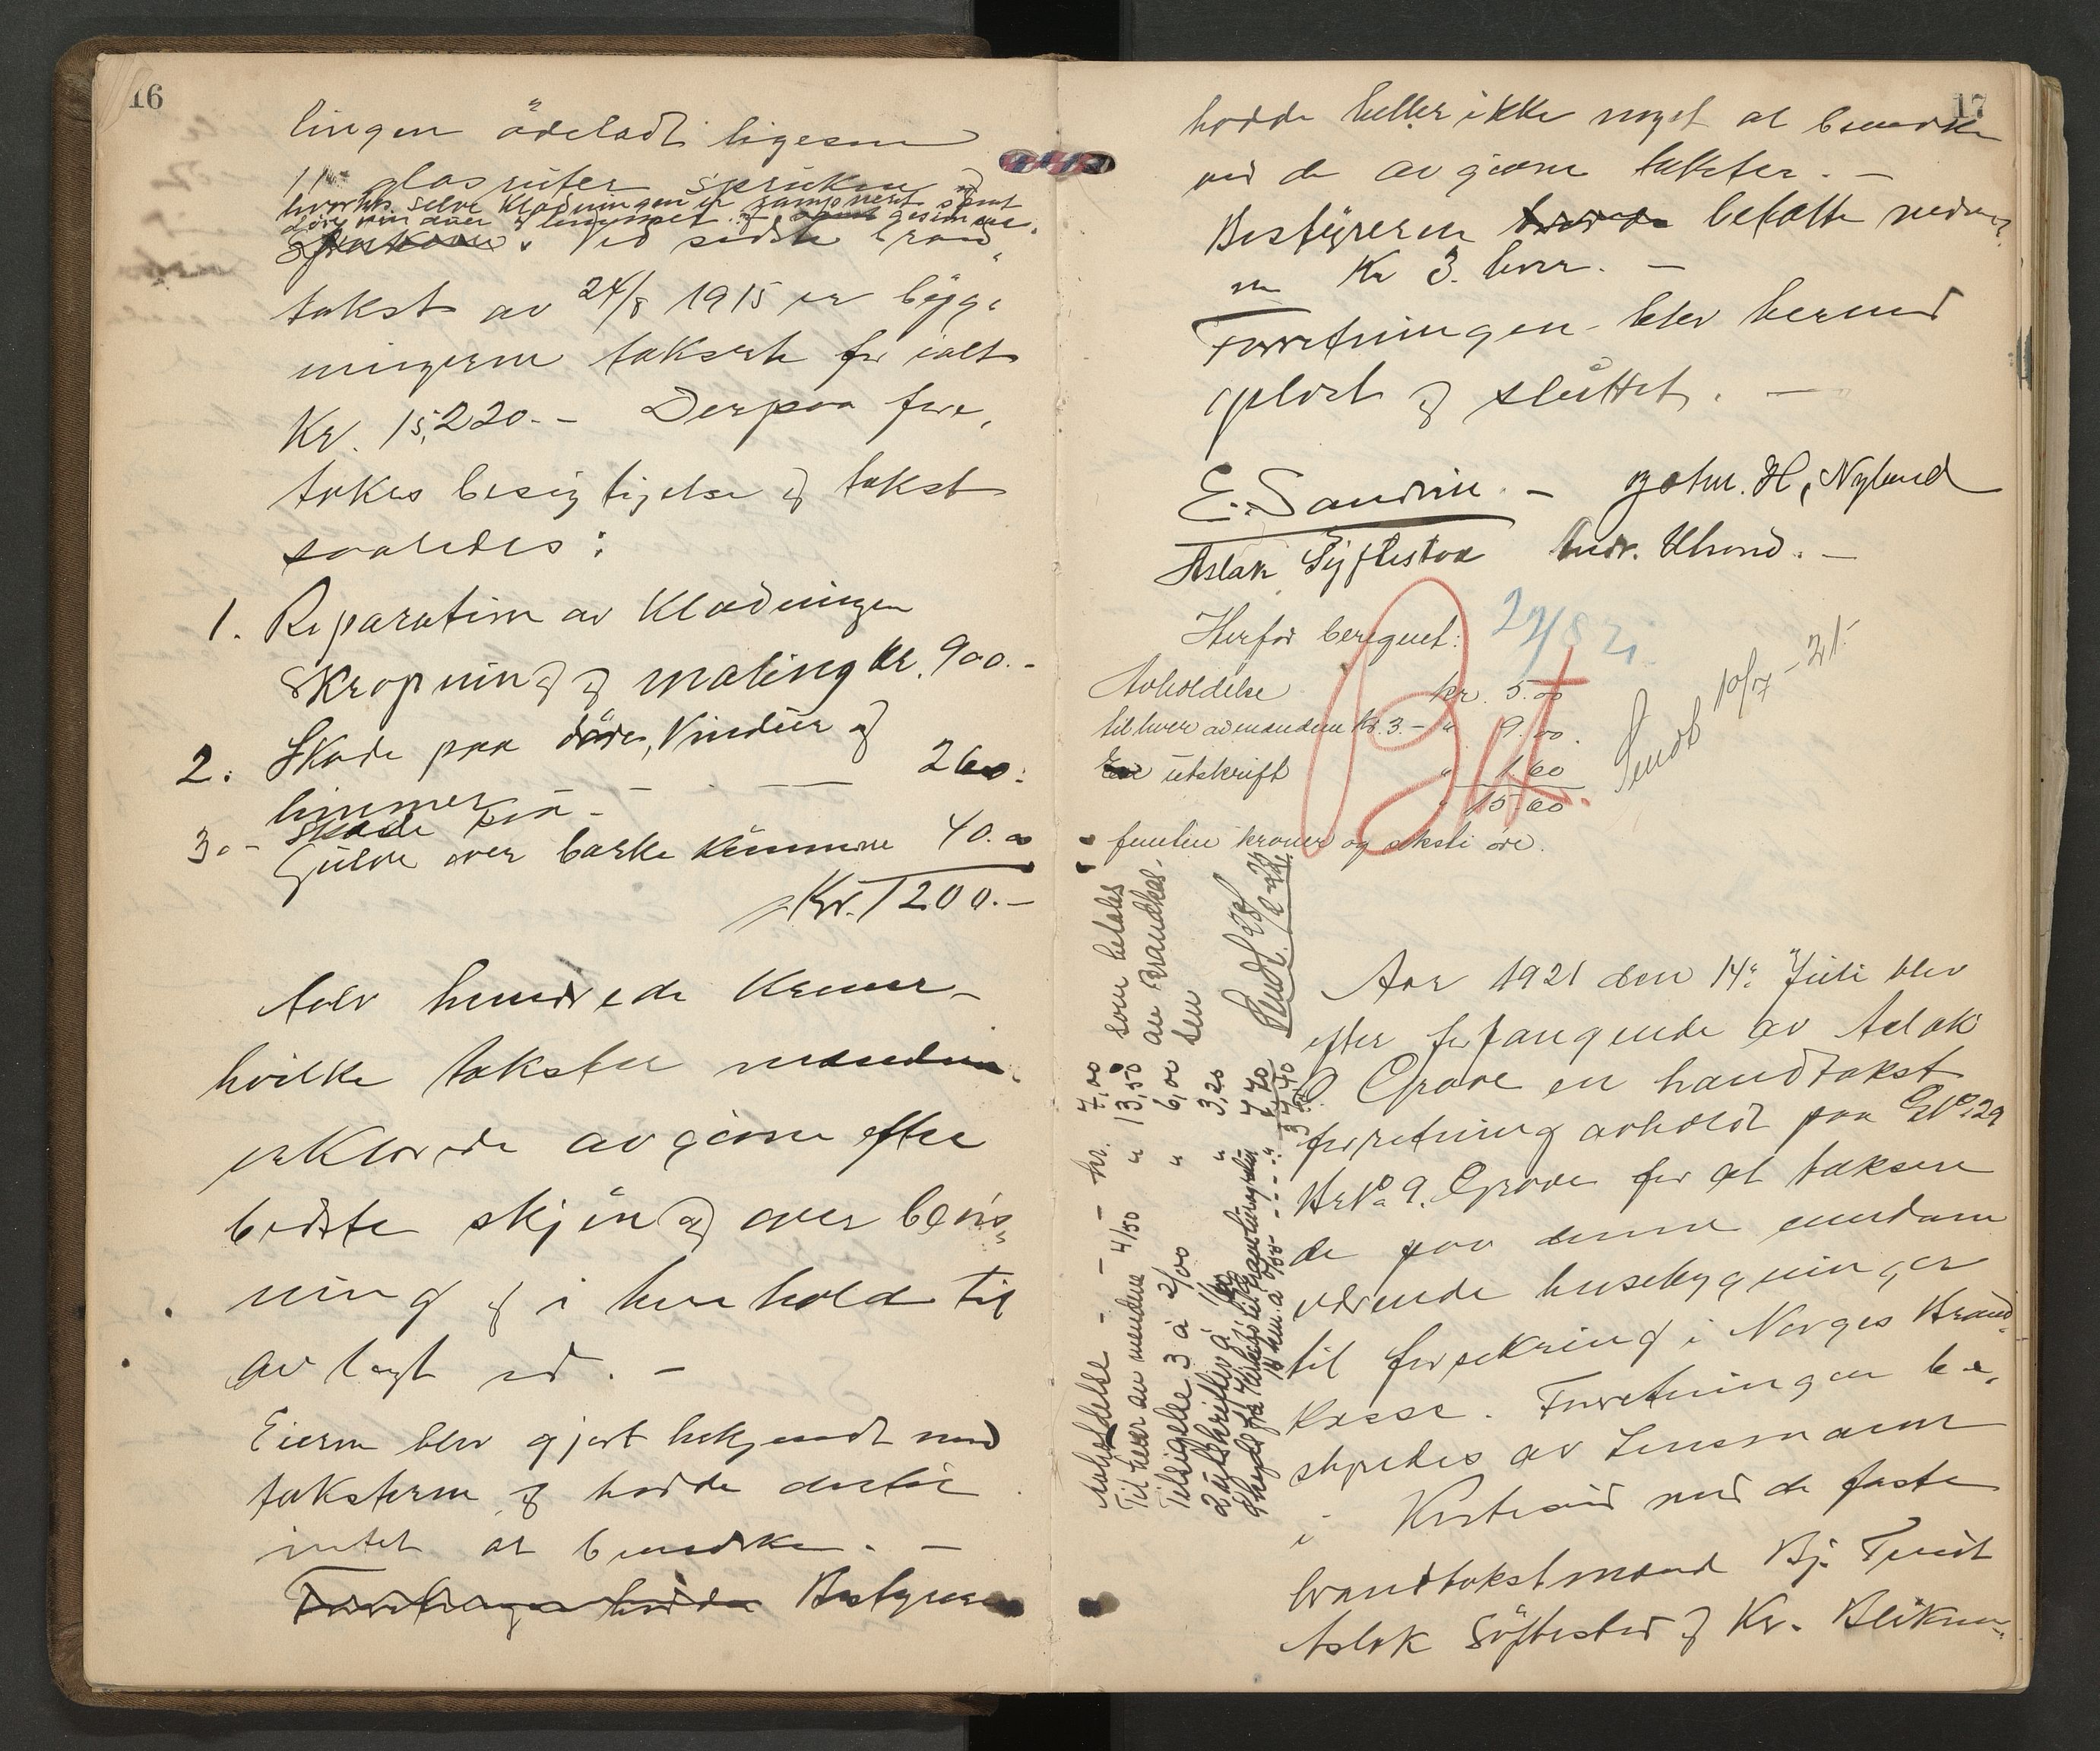 16
lingen ödeladt ligesom
11 glasruter sprukken
hvorhos selve klædningen er ramponert samt
döre vinduer
Ved sidste brand,
takst av 24/8 1915 er byg,
ningerne takserte for ialt
Kr. 15,220.- Derpaa fore,
tokes besigtigelse og takst
saaledes:
1. Reparation av Klædningen
skrapning og maling kr. 900.-
2. Skade paa döre, Vinduer og
limmer - - 260:
3.- skade paa
Gulve over barke kummene 40.00
Kr. 1200.-
tolv hundrede Kroner-
hvilke takster mændene
erklærede avgivne efter
bedste skjön og over bevis,
ning og i henhold til
avlagt ed. -
Eieren blev gjort bekjendt med
taksterne og hadde dertil
intet at bemærke. -
Forretningen hadde Bestyreren
17
hadde heller ikke noget at bemærke
ved de avgivne takster. -
Bestyreren befalte
Kr 3. hver. -
Forretningen blev hermed
oplæst og sluttet. -
E. Sandvin. - Johs. H. Nyland
Aslak Syftestad Andr. Ulvund. -
Herfor beregnet: 22/8 21.
Avholdelse kr. 5.00
til hver av mændene Kr. 3.- " 9.00.
utskrift " 1.60
" 15.60
femten kroner og seksti øre.
Sendt 10/7-21.
Avholdelse - - - kr. 7,00 som betales
Til hver av mændene 4/50 " 13,50 av Brandkas-
Tilsigelse 3 à 2/00 " 6,00 sen
2 utskrifter à 1/60 " 3,20
7,70
37,40
Aar 1921 den 14de Juli blev
efter forlangende av Aslak
O. Grove en brandtakst
forretning avholdt paa G.No. 29
Br.No. 9. Grove for at taksere
de paa denne eiendom
værende husebygninger
til forsikring i Norges Brand,
kasse. Forretningen be,
styredes av Lensmanen
i Kvitesid med de faste
brandtakstmænd Bj. Tveit
Aslak Söftestad og Kr.